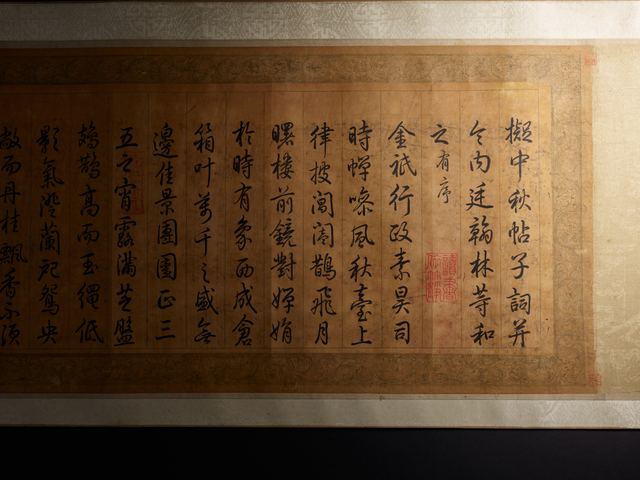 擬中秋帖子詞并
令内廷翰林等和
之有序
金祇行政素昊司
時蟬噪風秋臺上
律披閶闔鵲飛月
曙樓前鏡對嬋娟
於時有象西成倉
箱叶萬千之盛無
邊佳景團圓正三
五之宵露滿芝盤
鳷鵲高而玉繩低
影氣澄蘭妃鴛央
敞而丹桂飄香不須